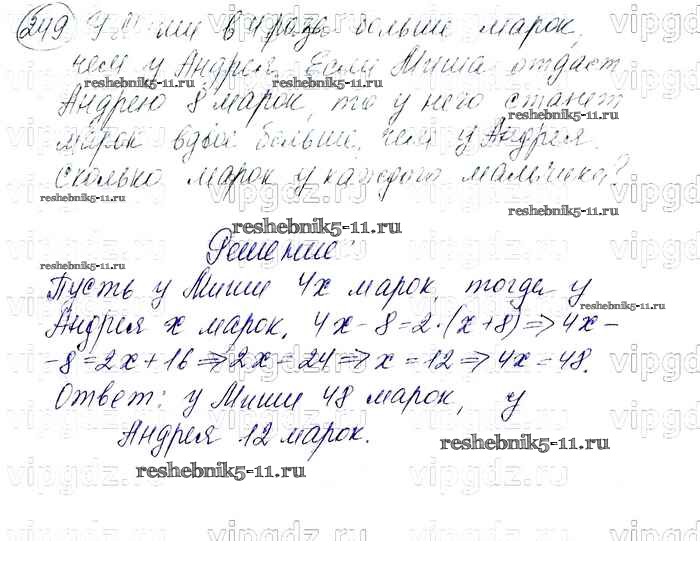 249 У Миши в 4 раза больше марок,
чем у Андрея. Если Миша отдаст
Андрею 8 марок, то у него станет
марок вдвое больше, чем у Андрея.
Сколько марок у каждого мальчика?
Решение:
Пусть у Миши 4х марок, тогда у
Андрея х марок. 4х-8=2·(х+8)=>4х-
-8=2х+16=>2х=24=>х=12=>4х=48.
Ответ: у Миши 48 марок, у
Андрея 12 марок.
reshebnik5-11.ru
reshebnik5-11.ru
reshebnik5-11.ru
reshebnik5-11.ru
reshebnik5-11.ru
reshebnik5-11.ru
reshebnik5-11.ru
reshebnik5-11.ru
reshebnik5-11.ru
reshebnik5-11.ru
vipgdz.ru